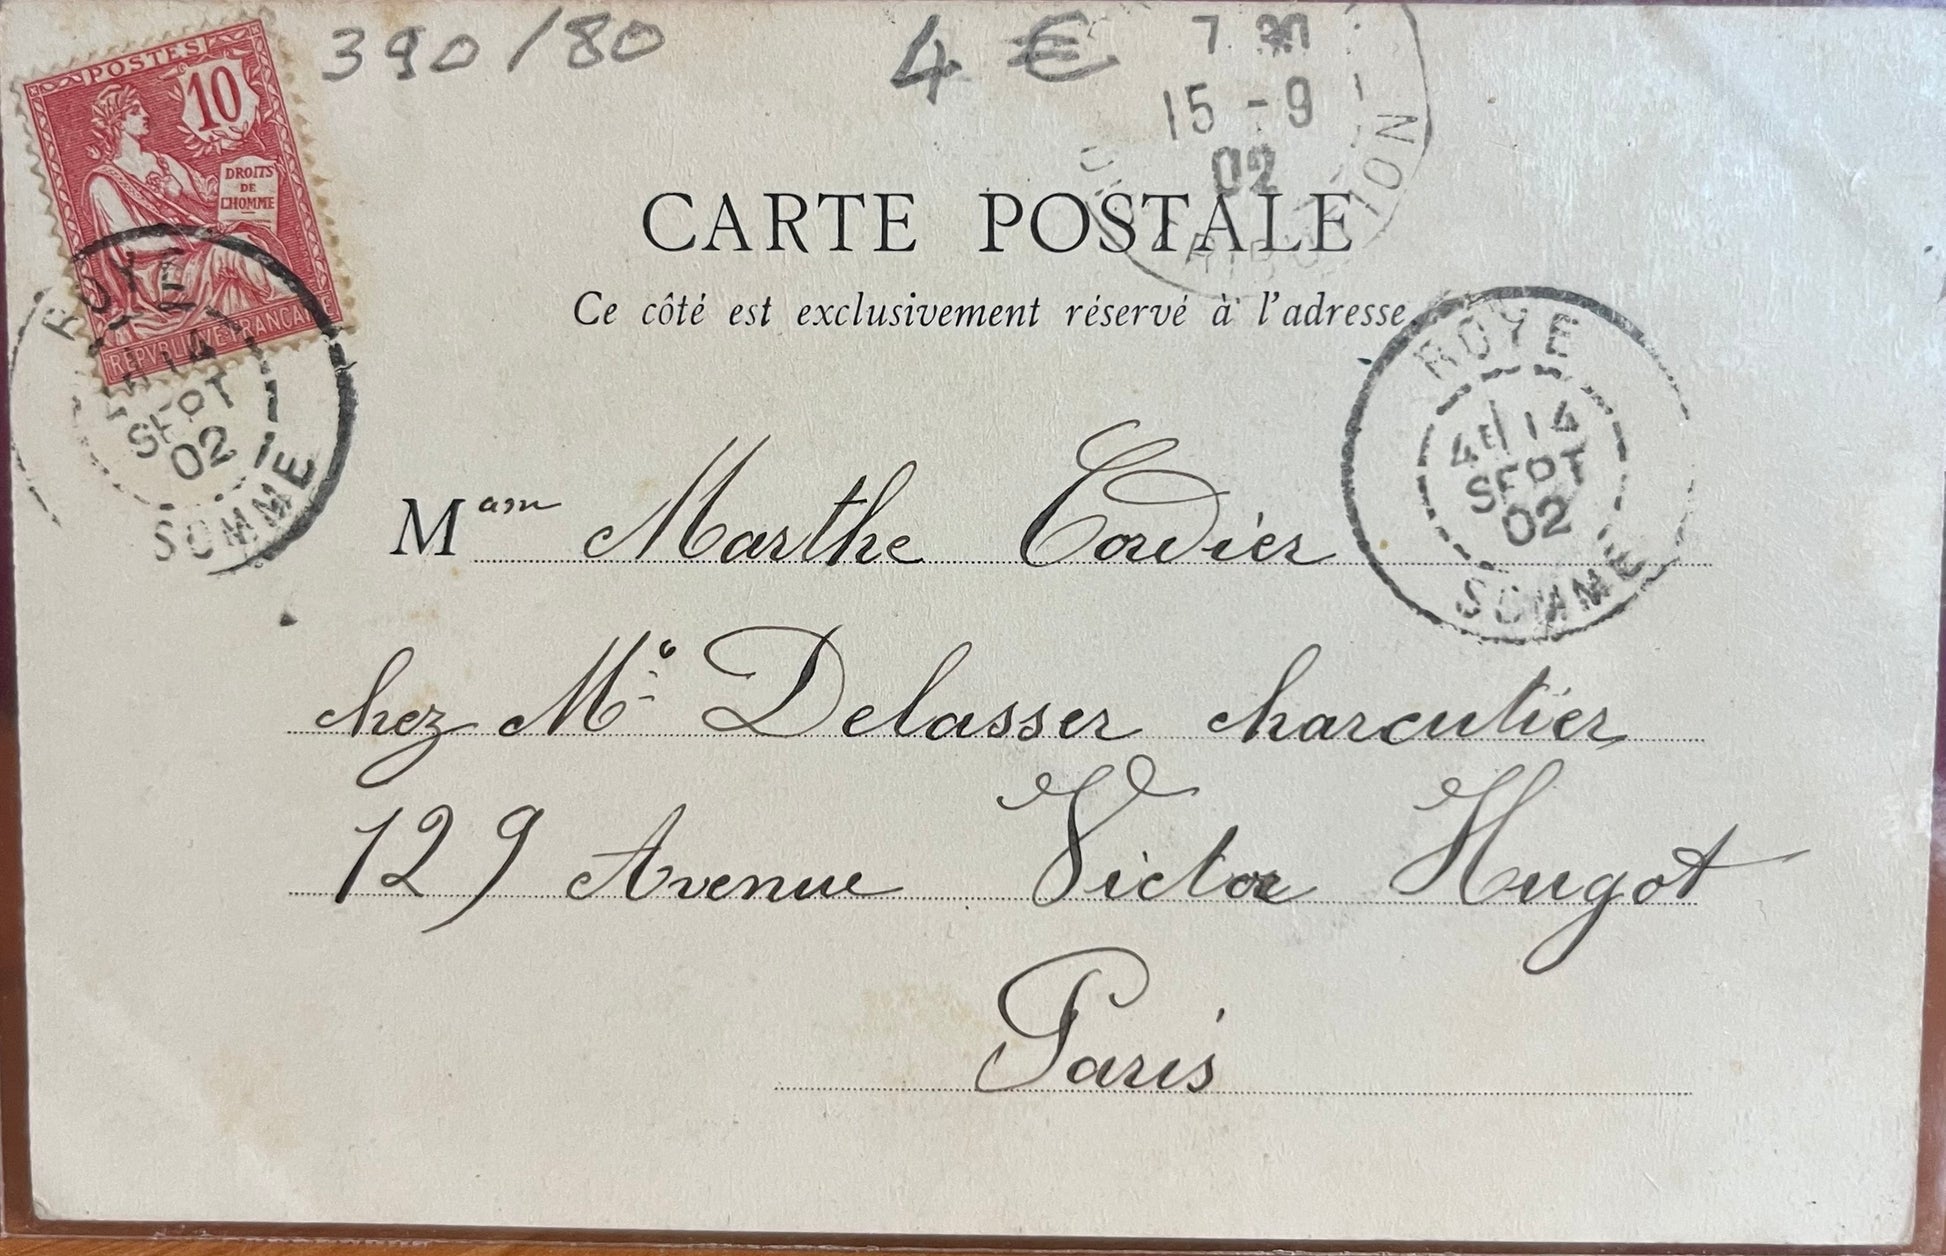 390/80 4 €
POSTES
10
DROITS
DE
L'HOMME
REPVBLIQVE FRANCAISE
7
15 -9
02
DISTRIBUTION
CARTE POSTALE
Ce côté est exclusivement réservé à l'adresse
ROYE
14
SEPT
02
SOMME
ROYE
4E 14
SEPT
02
SOMME
Mam Marthe Cordier
chez Mr Delasser charcutier
129 Avenue Victor Hugot
Paris